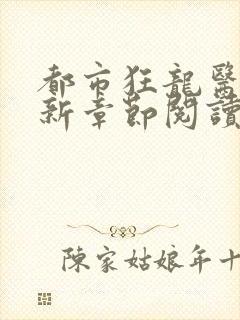 都市狂龍醫
新章節閱讀
陳家姑娘年十